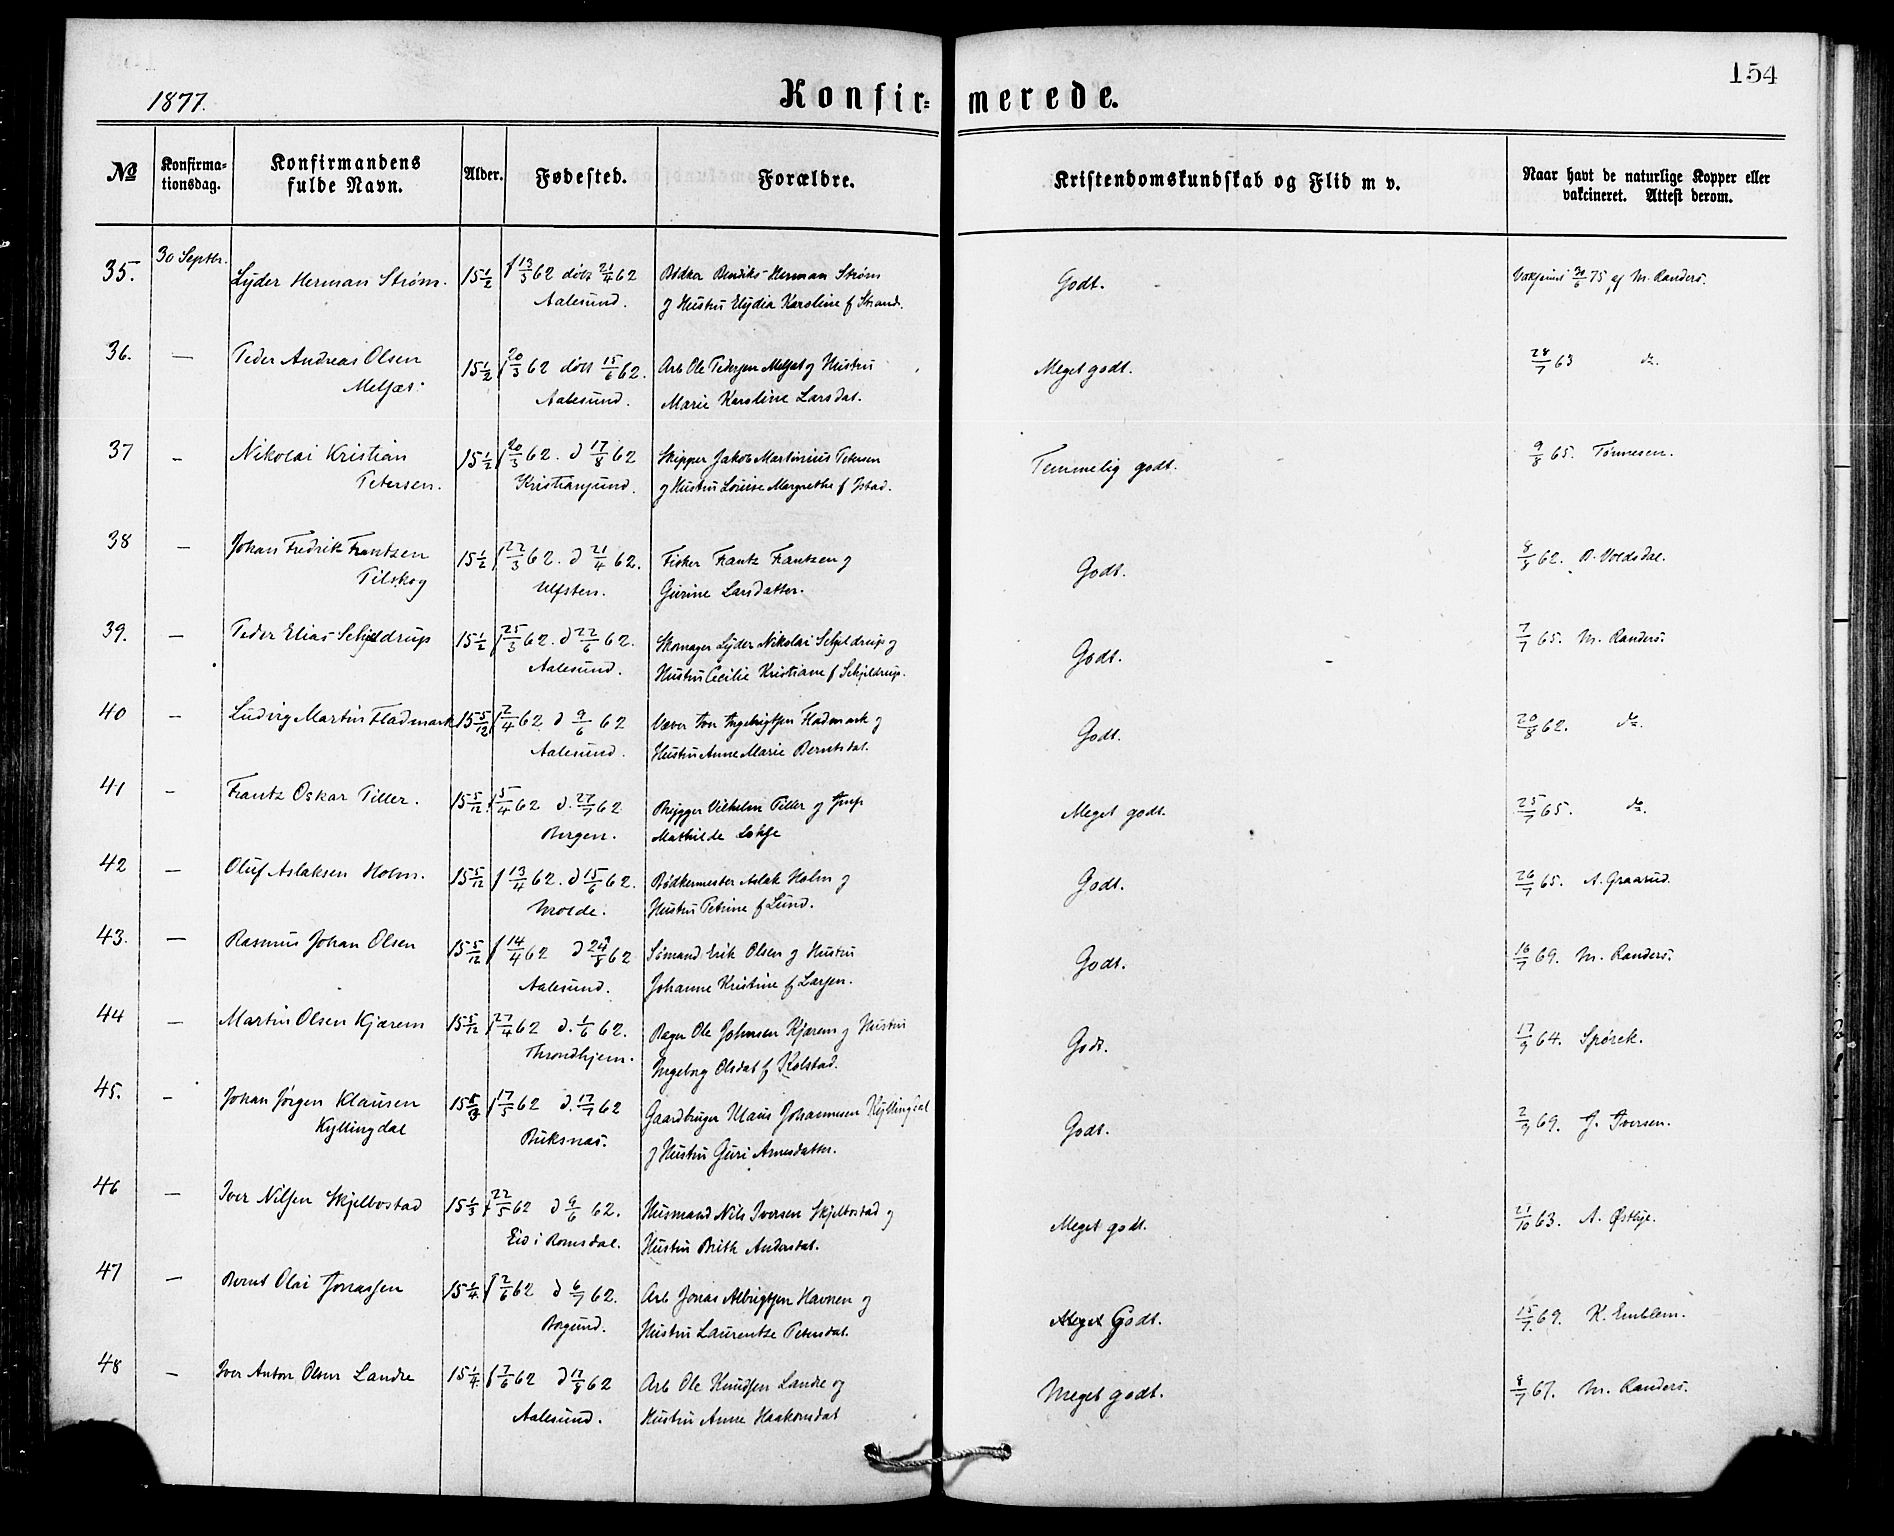 154
1877.
Konfir= merede.
№ Konfirma=tionsdag. Konfirmandens fulde Navn. Alder. Fødested. Forældre. Kristendomskundskab og Flid m v. Naar havt de naturlige Kopper eller vakcineret. Attest derom.
35. 30 Septbr. Lyder Herman Strøm. 15 1/2 f 13/3 62 døbt 21/4 62 Bødker Bendiks Herman Strøm Godt. 75 af M. Randers.
Aalesund. og Hustru Elydia Karoline f Strand.
36. — Peder Andreas Olsen 15 1/2 f 20/3 62 døbt 15/6 62. Arb Ole Pedersen Melsæt og Hustru Meget godt. 28/7 63 do.
Melsæt. Aalesund. Marie Karoline Larsdat.
37 — Nikolai Kristian 15 1/2 f 20/3 62. d 17/8 62 Skipper Jakob Martinius Petersen Temmelig godt. 9/8 65. Tønnesen.
Petersen. Kristiansund. og Hustru Louise Margrethe f
38 — Johan Fredrik Frantzen 15 1/2 f 22/3 62. d 21/4 62. Fisker Frantz Frantzen og Godt. 62. Voldsdal.
Pilskog Ulfsten. Gurine Larsdatter.
39. — Peder Elias Schjeldrup 15 1/2 f 25/3 62. d 22/6 62. Skomager Lyder Nikolai Schjeldrup og Godt. 7/7 65. M. Randers.
Aalesund. Hustru Cecilie Kristiane f Schjeldrup.
40 — Ludvig Martin Fladmark 15 5/12 f 2/4 62 d 9/6 62 Væver Iver Ingebrigtsen Fladmark og Godt. 20/8 62. do.
Aalesund. Hustru Anne Marie Berntsdat.
41 — Frantz Oskar Piller. 15 5/12 f 5/4 62 d. 27/7 62 Brygger Vilhelm Piller og Meget godt. 25/7 65. do.
Bergen. Mathilde
42 — Oluf Aslaksen Holm. 15 5/12 f 13/4 62. d 15/6 62. Bødkermester Aslak Holm og Godt. 26/7 65. A. Graarud.
Molde. Hustru Petrine f Lund.
43. — Rasmus Johan Olsen 15 5/12 f 14/4 62 d 24/8 62 Sømand Erik Olsen og Hustru Godt. 16/7 69. M. Randers.
Aalesund. Johanne Kristine f Larsen.
44 — Martin Olsen Kjærem 15 5/12 f 27/4 62 d. 1/6 62. Bager Ole Johnsen Kjærem og Hustru Godt. 17/9 64. Spørck.
Throndhjem. Ingeborg Olsdat f Kolstad.
45. — Johan Jørgen Klausen 15 f 17/5 62 d. 17/7 62 Gaardbruger Klaus Johannesen Kyllingdal Godt. 69. J. Iversen.
Kyllingdal Buksnæs. og Hustru Guri Arnesdatter.
46 — Iver Nilsen Skjelbostad 15 1/3 f 22/5 62 d 9/6 62. Husmand Nils Iversen Skjelbostad og Meget godt. 21/10 63. A. Østbye.
Eid i Romsdal. Hustru Brith Andersdat.
47 — Bernt Olai Jonassen 15 1/4 f 2/6 62 d 6/7 62. Arb Jonas Albrigtsen Havnen og Meget Godt. 15/7 69. K. Emblem.
Borgund. Hustru Laurentze Petersdat.
48 — Iver Anton Olsen Landre 15 1/4 f 7/6 62 d 17/8 62 Arb Ole Knudsen Landre og Meget godt. 8/7 67. M. Randers.
Aalesund. Hustru Anne Haakonsdat